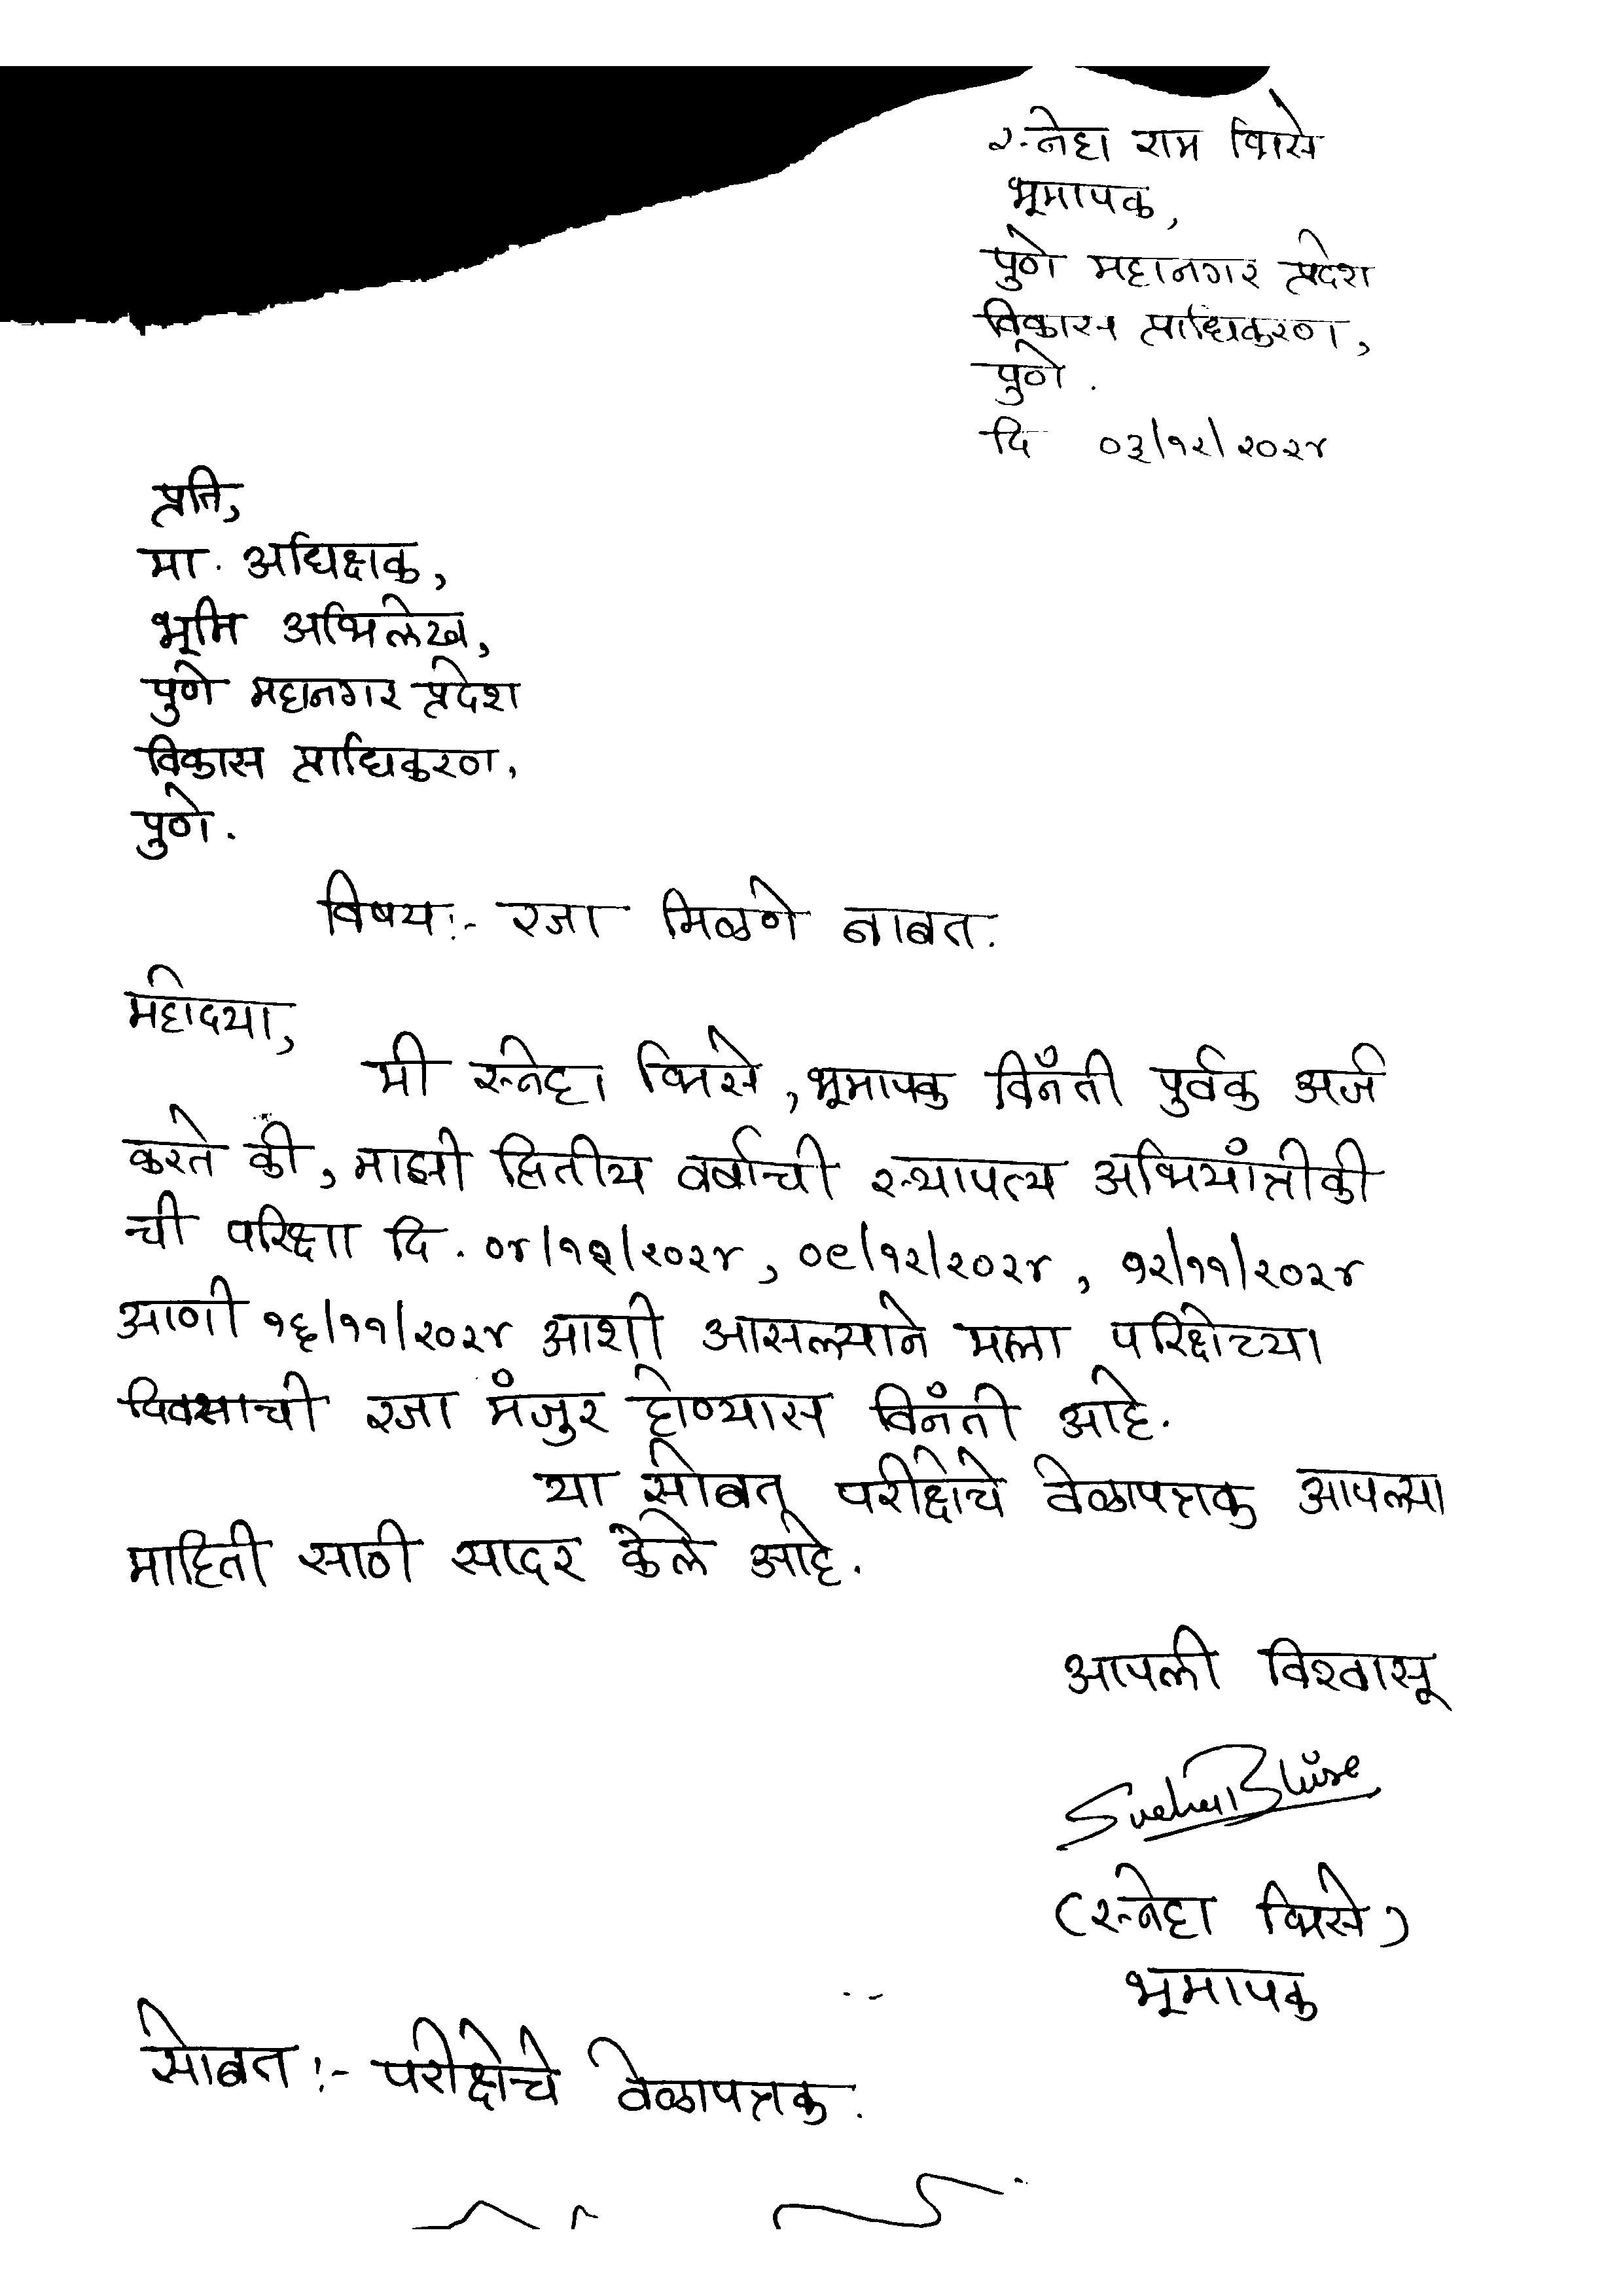 स्नेहा राम भिसे
भूमापक,
पुणे महानगर प्रदेश
विकास प्राधिकरण,
पुणे.
दि ०३/१२/२०२४
प्रति,
मा. अधिक्षक,
भूमि अभिलेख,
पुणे महानगर प्रदेश
विकास प्राधिकरण,
पुणे.
विषय:- रजा मिळणे बाबत.
महोदया,
मी स्नेहा भिसे, भूमापक विनँती पुर्वक अर्ज
करते की, माझी द्वितीय वर्षाची स्थापत्य अभियाँत्रीकी
ची परिक्षा दि. ०४/१२/२०२४, ०९/१२/२०२४, १२/११/२०२४
आणी १६/११/२०२४ आशी आसल्याने मला परिक्षेच्या
दिवसाची रजा मंजुर होण्यास विनँती आहे.
या सोबत परीक्षेचे वेळापत्रक आपल्या
माहिती साठी सादर केले आहे.
आपली विश्वासू
Sneha Bhise
(स्नेहा भिसे)
भूमापक
सोबत:- परीक्षेचे वेळापत्रक.